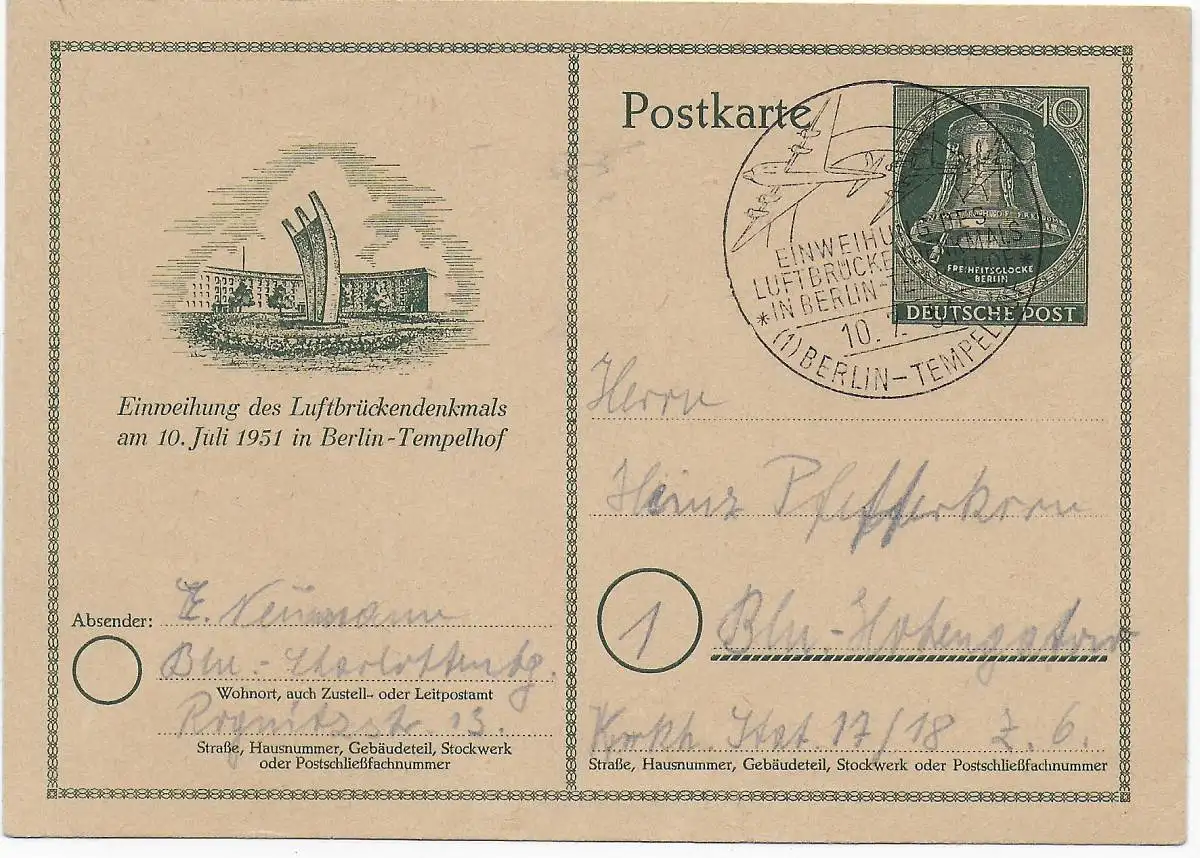 Postkarte
10
FREIHEITSGLOCKE
BERLIN
DEUTSCHE POST
EINWEIHUNG DES
LUFTBRÜCKE
IN BERLIN-
10. 7. 51
(1) BERLIN-TEMPEL
Einweihung des Luftbrückendenkmals
am 10. Juli 1951 in Berlin-Tempelhof
Herrn
Heinz Pfefferkorn
1 Bln.-
Krkh. Stat. 17/18 Z. 6.
Straße, Hausnummer, Gebäudeteil, Stockwerk oder Postschließfachnummer
Absender: E. Neumann
Bln.-Charlottenbg.
Wohnort, auch Zustell- oder Leitpostamt
Rognitzstr. 13.
Straße, Hausnummer, Gebäudeteil, Stockwerk
oder Postschließfachnummer